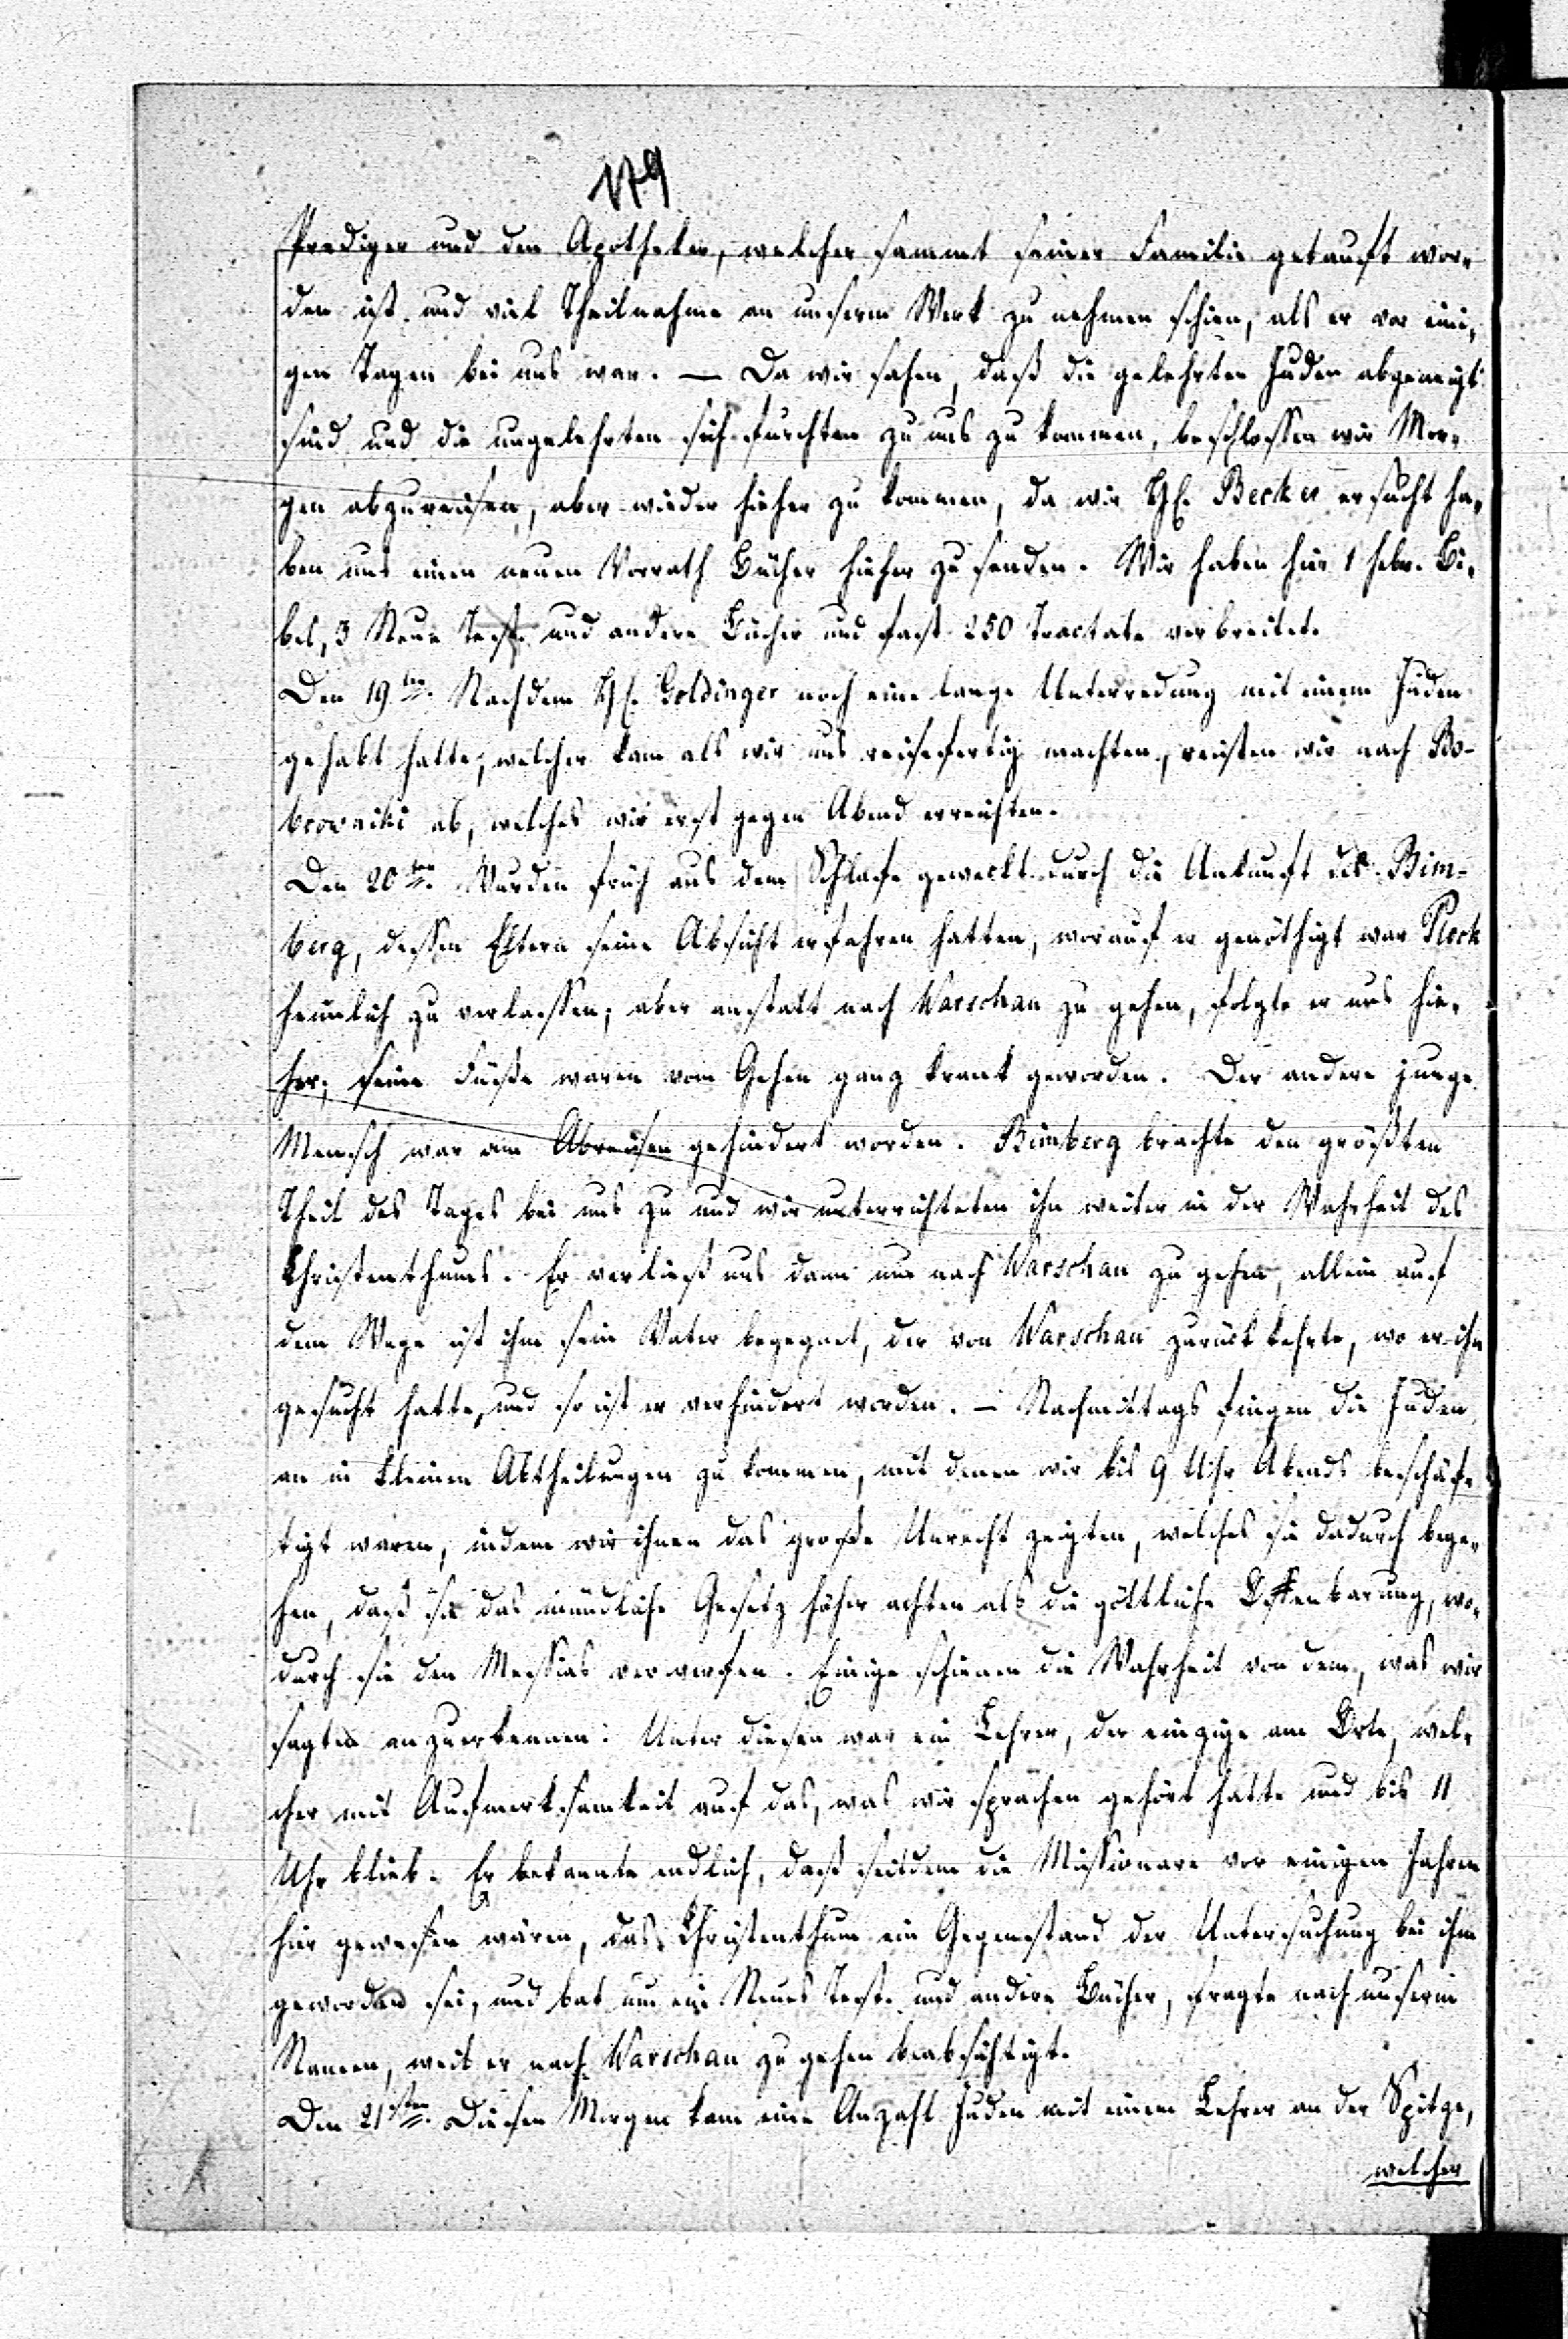 179
Prediger und den Apotheker, welcher sammt seiner Familie getauft wor-
den ist und viel Theilnahme an unserm Werk zu nehmen schien, als er vor eini-
gen Tagen bei uns war. — Da wir sahen, daß die gelehrten Juden abgeneigt
sind und die ungelehrten sich furchten zu uns zu kommen, beschlossen wir Mor-
gen abzureisen, aber wieder hieher zu kommen, da wir H. Becker ersucht ha-
ben uns einen neuen Vorrath Bücher hieher zu senden. Wir haben hier 1 hebr. Bi-
bel, 3 Neue Test. und andere Bücher und fast 250 Tractate verbreitet.
Den 19ten. Nachdem H. Goldinger noch eine lange Unterredung mit einem Juden
gehabt hatte, welcher kam als wir uns reisefertig machten, reisten wir nach Bo-
browniki ab, welches wir erst gegen Abend erreichten.
Den 20ten. Wurden früh aus dem Schlafe geweckt durch die Ankunft des Bim-
berg, dessen Eltern seine Absicht erfahren hatten, worauf er genöthigt war Plock
heimlich zu verlassen; aber anstatt nach Warschau zu gehen, folgte er uns hie-
her; seine Füße waren vom Gehen ganz krank geworden. Der andere junge
Mensch war am Abreisen gehindert worden. Bimberg brachte den größten
Theil des Tages bei uns zu und wir unterrichteten ihn weiter in der Wahrheit des
Christenthums. Er verließ uns dann um nach Warschau zu gehen, allein auf
dem Wege ist ihm sein Vater begegnet, der von Warschau zurückkehrte, wo er ihn
gesucht hatte, und so ist er verhindert worden. — Nachmittags fingen die Juden
an in kleinen Abtheilungen zu kommen, mit denen wir bis 9 Uhr Abends beschäf-
tigt waren, indem wir ihnen das große Unrecht zeigten, welches sie dadurch bege-
hen, daß sie das mündliche Gesetz höher achten als die göttliche Offenbarung, wo-
durch sie den Messias verwerfen. Einige schienen die Wahrheit von dem, was wir
sagten anzuerkennen: Unter diesen war ein Lehrer, der einzige am Orte, wel-
cher mit Aufmerksamkeit auf das, was wir sprachen gehört hatte und bis 11
Uhr blieb. Er bekannte endlich, daß seitdem die Missionare vor einigen Jahren
hier gewesen wären, das Christenthum ein Gegenstand der Untersuchung bei ihm
geworden sei, und bat um ein Neues Test. und andere Bücher, fragte nach unserm
Namen, weil er nach Warschau zu gehen beabsichtigt.
Den 21sten. Diesen Morgen kam eine Anzahl Juden mit einem Lehrer an der Spitze,
welcher